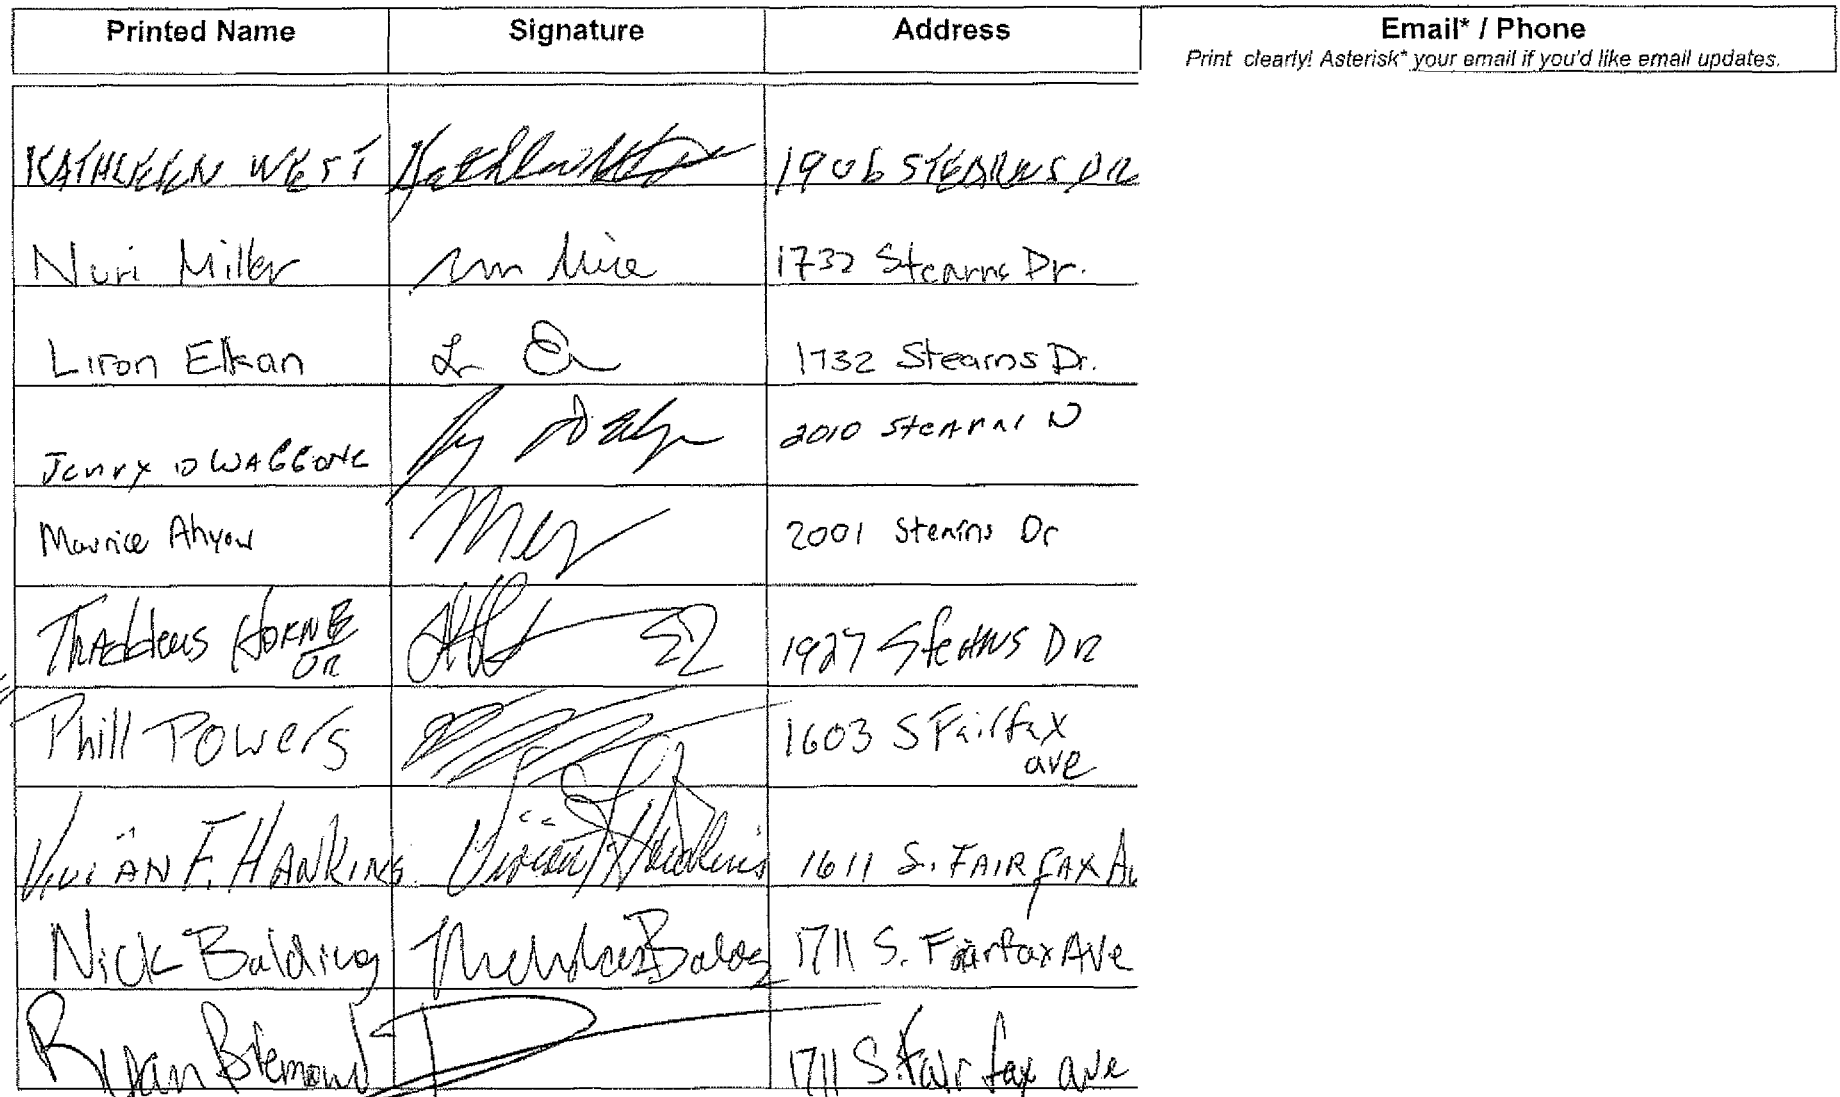 Printed Name Signature Address Email* / Phone
Print clearly! Asterisk* your email if you'd like email updates.
KATHLEEN WEST 1906 STEARNS DR
Nuri Miller 1732 Stearns Dr.
Liron Elkan 1732 Stearns Dr.
Jerry D 2010 Stearns
Maurice Ahyow 2001 Stearns Dr
Thaddeus HORNE 1927 Stearns DR
Phill Powers 1603 S Fairfax
ave
Vivian F. HANKINS Vivian F Hankins 1611 S. FAIRFAX Av
Nick Balding 1711 S. Fairfax Ave
Ryan 1711 S. Fairfax ave